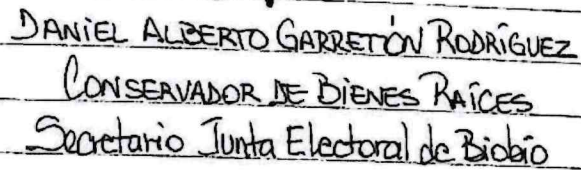 DANIEL ALBERTO GARRETÓN RODRÍGUEZ
CONSERVADOR DE BIENES RAÍCES
Secretario Junta Electoral de Biobío